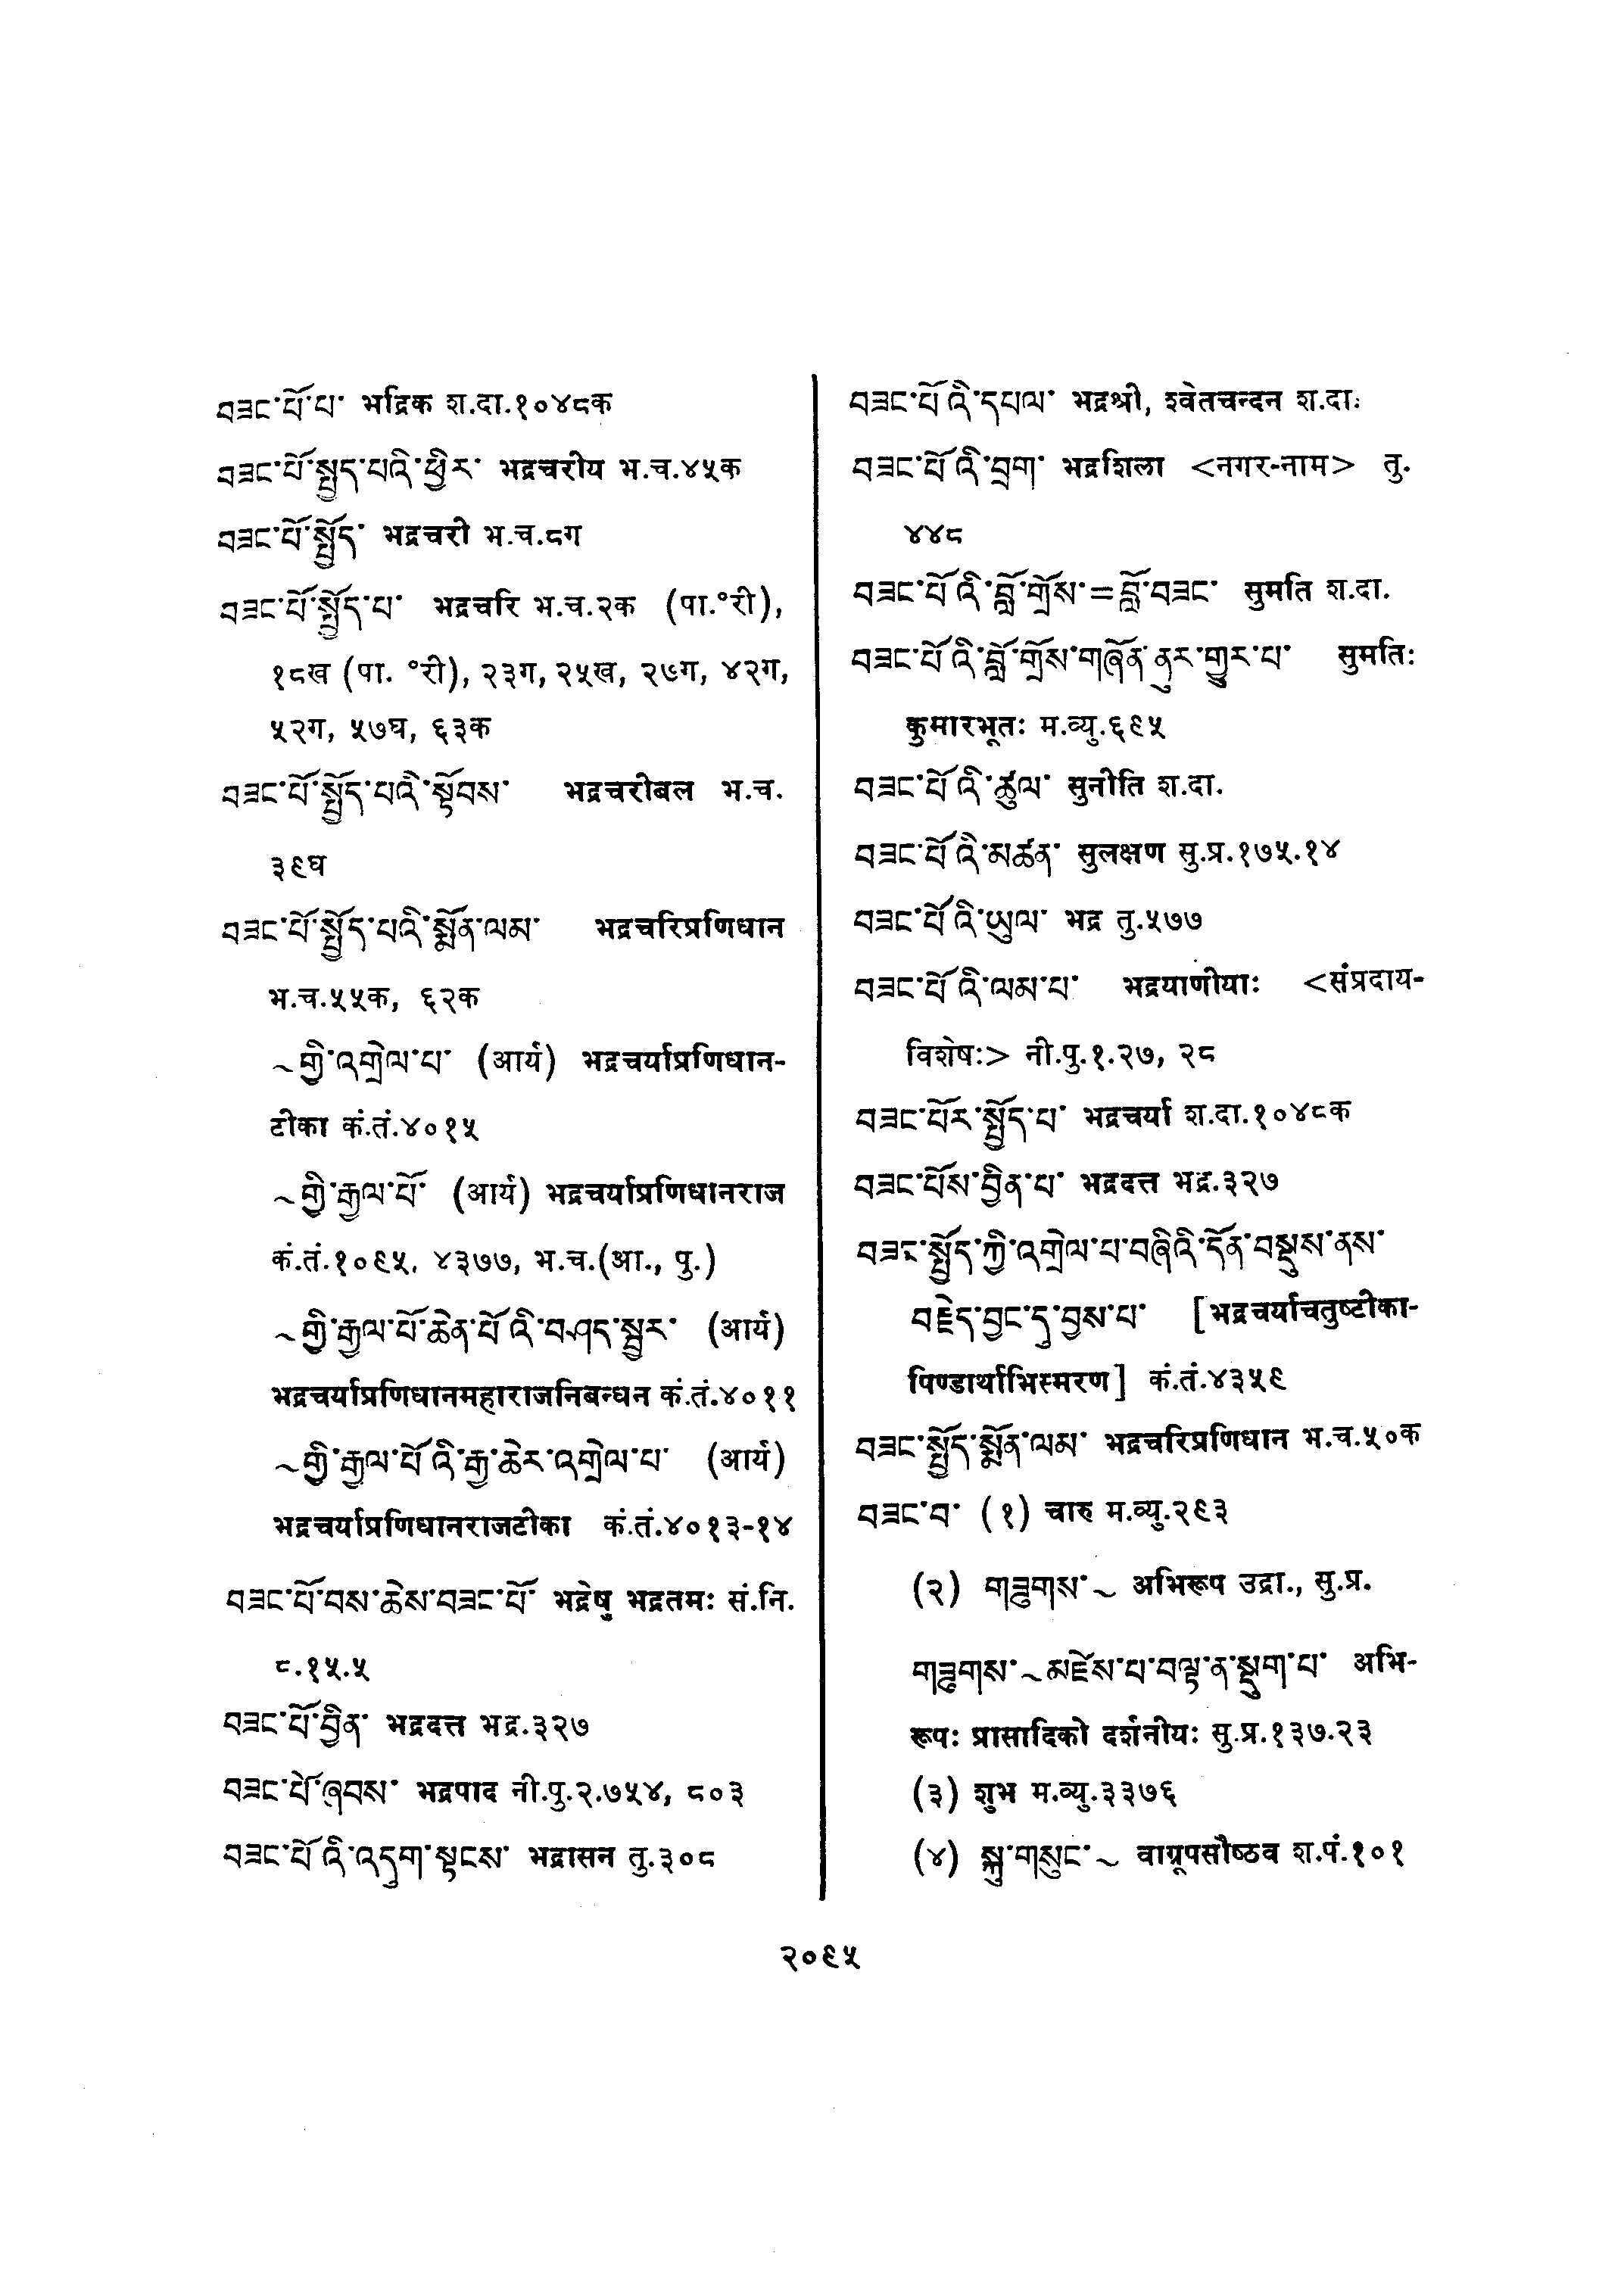 བཟང་པོ་པ་ भद्रिक श.दा.१०४८क
བཟང་པོ་སྤྱད་པའི་ཕྱིར་ भद्रचरीय भ.च.४५क
བཟང་པོ་སྤྱོད་ भद्रचरी भ.च.८ग
བཟང་པོ་སྤྱོད་པ་ भद्रचरि भ.च.२क (पा.°री),
१८ख (पा. °री), २३ग, २५ख, २७ग, ४२ग,
५२ग, ५७घ, ६३क
བཟང་པོ་སྤྱོད་པའི་སྟོབས་ भद्रचरीबल भ.च.
३९घ
བཟང་པོ་སྤྱོད་པའི་སྨོན་ལམ་ भद्रचरिप्रणिधान
भ.च.५५क, ६२क
~གྱི་འགྲེལ་པ་ (आर्य) भद्रचर्याप्रणिधान-
टीका कं.तं.४०१५
~གྱི་རྒྱལ་པོ་ (आर्य) भद्रचर्याप्रणिधानराज
कं.तं.१०९५, ४३७७, भ.च.(आ., पु.)
~གྱི་རྒྱལ་པོ་ཆེན་པོ་འི་བཤད་སྦྱར་ (आर्य)
भद्रचर्याप्रणिधानमहाराजनिबन्धन कं.तं.४०११
~གྱི་རྒྱལ་པོ་འི་རྒྱ་ཆེར་འགྲེལ་པ་ (आर्य)
भद्रचर्याप्रणिधानराजटीका कं.तं.४०१३-१४
བཟང་པོ་བས་ཆེས་བཟང་པོ་ भद्रेषु भद्रतमः सं.नि.
८.१५.५
བཟང་པོ་བྱིན་ भद्रदत्त भद्र.३२७
བཟང་པོ་ཞབས་ भद्रपाद नी.पु.२.७५४, ८०३
བཟང་པོ་འི་འདུག་སྟངས་ भद्रासन तु.३०८
བཟང་པོ་འི་དཔལ་ भद्रश्री, श्वेतचन्दन श.दा.
བཟང་པོ་འི་བྲག་ भद्रशिला <नगर-नाम> तु.
४४८
བཟང་པོ་འི་བློ་གྲོས་=བློ་བཟང་ सुमति श.दा.
བཟང་པོ་འི་བློ་གྲོས་གཞོན་ནུར་གྱུར་པ་ सुमतिः
कुमारभूतः म.व्यु.६९५
བཟང་པོ་འི་ཚུལ་ सुनीति श.दा.
བཟང་པོ་འི་མཚན་ सुलक्षण सु.प्र.१७५.१४
བཟང་པོ་འི་ཡུལ་ भद्र तु.५७७
བཟང་པོ་འི་ལམ་པ་ भद्रयाणीयाः <संप्रदाय-
विशेषः> नी.पु.१.२७, २८
བཟང་པོར་སྤྱོད་པ་ भद्रचर्या श.दा.१०४८क
བཟང་པོས་བྱིན་པ་ भद्रदत्त भद्र.३२७
བཟང་སྤྱོད་ཀྱི་འགྲེལ་པ་བཞིའི་དོན་བསྡུས་ནས་
བརྗེད་བྱང་དུ་བྱས་པ་ [भद्रचर्याचतुष्टीका-
पिण्डार्थाभिस्मरण] कं.तं.४३५९
བཟང་སྤྱོད་སྨོན་ལམ་ भद्रचरिप्रणिधान भ.च.५०क
བཟང་བ་ (१) चारु म.व्यु.२९३
(२) གཟུགས་~ अभिरूप उद्रा., सु.प्र.
གཟུགས་~མཛེས་པ་བལྟ་ན་སྡུག་པ་ अभि-
रूपः प्रासादिको दर्शनीयः सु.प्र.१३७.२३
(३) शुभ म.व्यु.३३७६
(४) སྐུ་གསུང་~ वाग्रूपसौष्ठव श.पं.१०१
२०९५